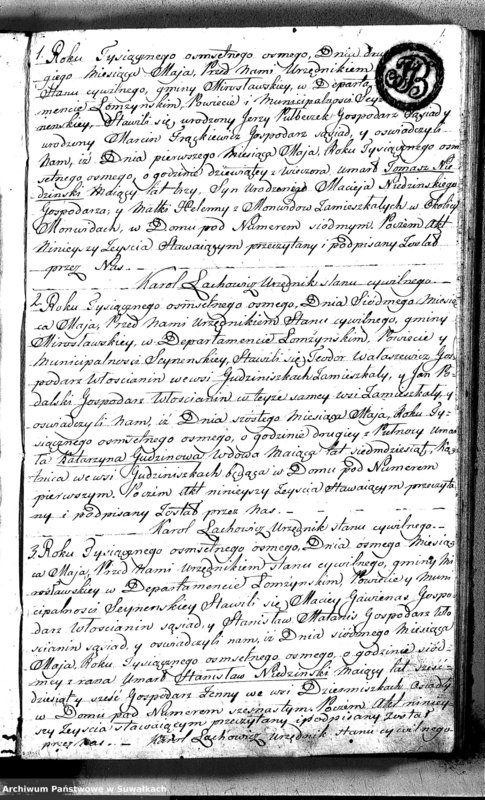 1. Roku Tysiącznego osmsetnego osmego, Dnia dru
giego Miesiąca Maja, Przed Nami Urzędnikiem
Stanu cywilnego, gminy Mirosławskiey, w Departa
mencie Łomżynskim, Powiecie i Municipalnosci Sey-
nenskiey, Stawili się, urodzony Jerzy Gospodarz Sąsiad y
urodzony Marcin Gospodarz sąsiad, y oswiadczyli
Nam, iż Dnia pierwszego miesiąca Maja, Roku Tysiącznego osm
setnego osmego, o godzinie dziewiątey z wieczora, umarł Tomasz Nie
dzinski Maiący lat trzy, Syn Urodzonego Macieja Niedzinskiego
Gospodarza, y Matki Helenny z Monwidow Zamieszkałych w Okolicy
Monwidach, w Domu pod Numerem siodmym. Poczem Akt
Ninieyszy Zeyscia Stawaiącym przeczytany i podpisany został
przez Nas.
Karol Lachowicz Urzędnik stanu cywilnego.
2. Roku Tysiącznego osmsetnego osmego, Dnia Siodmego Miesią
ca Maja, Przed Nami Urzędnikiem Stanu cywilnego, gminy
Mirosławskiey, w Departamencie Łomżynskim, Powiecie y
Municipalnosci Seynenskiey, Stawili się, Teodor Walaszewicz Gos
podarz Włoscianin we wsi Gudziniszkach Zamieszkały, y Jan Po
dalski Gospodarz Włoscianin w teyże samey wsi Zamieszkały, y
oswiadczyli Nam, iż Dnia szostego Miesiąca Maja, Roku Ty-
siącznego osmsetnego osmego, o godzinie drugiey z Umar
ła Katarzyna Gudzinowa Wdowa Maiąca lat siedmdziesiąt,
we wsi Gudziniszkach będąca w Domu pod Numerem
pierwszym. Poczim Akt ninieyszy Zeyscia Stawaiącym przeczyta
ny i podpisany Został przez nas.
Karol Lachowicz Urzędnik stanu cywilnego.
3. Roku Tysiącznego osmsetnego osmego, Dnia osmego Miesią
ca Maja, Przed Nami Urzędnikiem stanu cywilnego, gminy Mi
rosławskiey w Departamencie Łomżynskim, Powiecie y Muni
cipalnosci Seynenskiey Stawili się Maciey Gawienas Gospo
darz Włoscianin sąsiad, y Stanisław Matanis Gospodarz Wło
scianin sąsiad, y oswiadczyli nam, iż Dnia siodmego Miesiąca
Maja, Roku Tysiącznego osmsetnego osmego, o godzinie siod-
mey z rana Umarł Stanisław Niedzinski maiący lat sześć-
dziesiąt y sześć Gospodarz we wsi Osiadły
w Domu pod Numerem szesnastym. Poczem Akt niniey
szy Zeyscia stawaiącym przeczytany i podpisany został
przez nas.
Karol Lachowicz Urzędnik stanu cywilnego
Archiwum Państwowe w Suwałkach